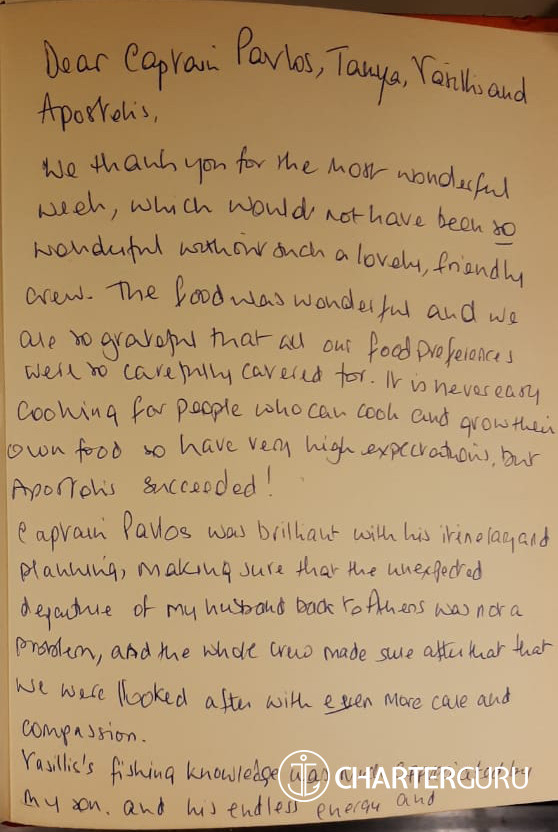 Dear Captain Pavlos, Tanya, Vasillis and
Apostolis,
We thank you for the most wonderful
week, which would not have been so
wonderful without such a lovely, friendly
crew. The food was wonderful and we
are so grateful that all our food preferences
were so carefully catered for. It is never easy
cooking for people who can cook and grow their
own food so have very high expectations, but
Apostolis succeeded!
Captain Pavlos was brilliant with his itinerary and
planning, making sure that the unexpected
departure of my husband back to Athens was not a
problem, and the whole crew made sure after that that
we were looked after with even more care and
compassion.
Vasillis's fishing knowledge was much appreciated by
my son. and his endless energy and
CHARTERGURU